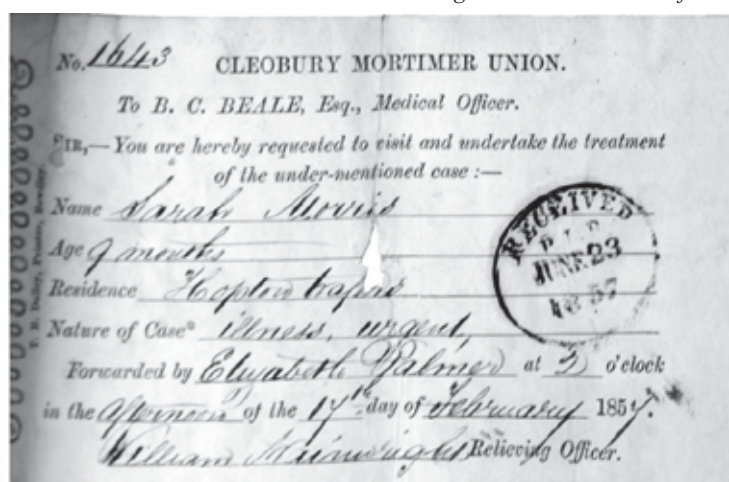 No. 1643 CLEOBURY MORTIMER UNION.
To B. C. BEALE, Esq., Medical Officer.
SIR,—You are hereby requested to visit and undertake the treatment
of the under-mentioned case :—
Name Sarah Morris
Age 9 months
Residence Hopton
Nature of Case* illness, urgent,
Forwarded by Elizabeth Palmer at 3 o'clock
in the Afternoon of the 17th day of February 1857.
William Wainwright Relieving Officer.
RECEIVED
JUNE 23
1857
Printer, Bewdley.